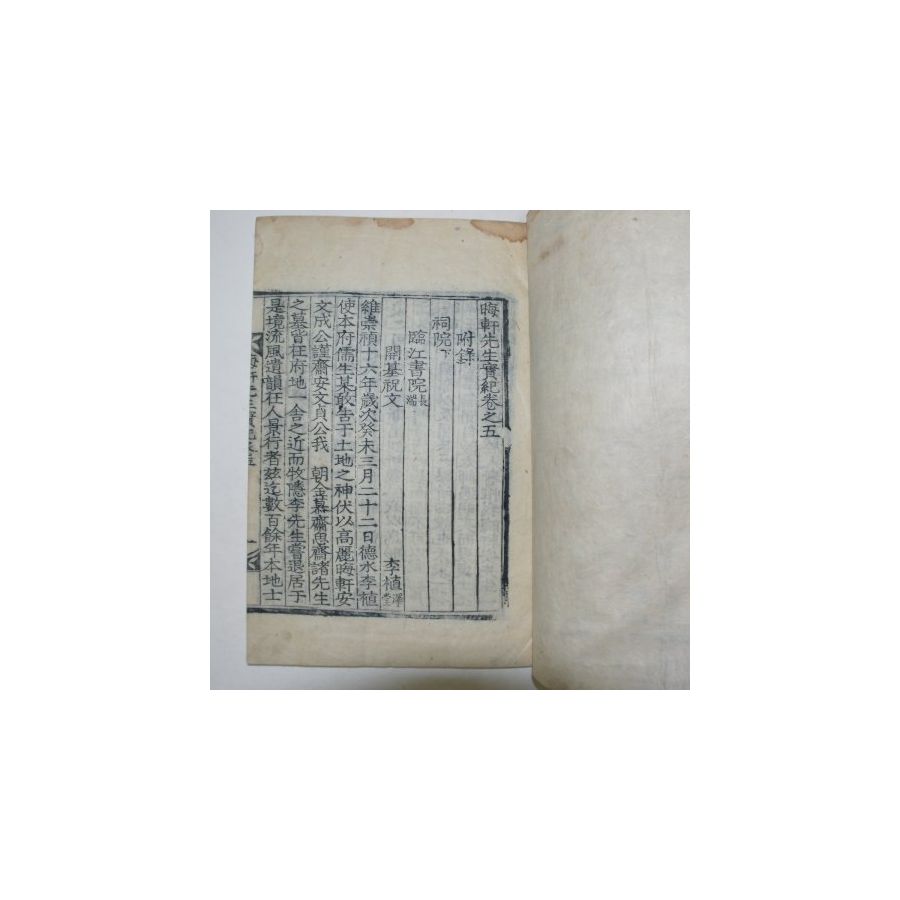 晦軒先生實紀卷之五
附錄
祠院下
臨江書院長湍
開基祝文 李植澤堂
維崇禎十六年歲次癸未三月二十二日德水李植
使本府儒生某敢告于土地之神伏以高麗晦軒安
文成公謹齋安文貞公我 朝金慕齋思齋諸先生
之墓皆在府地一舍之近而牧隱李先生嘗退居于
是境流風遺韻在人景行者玆迄數百餘年本地士